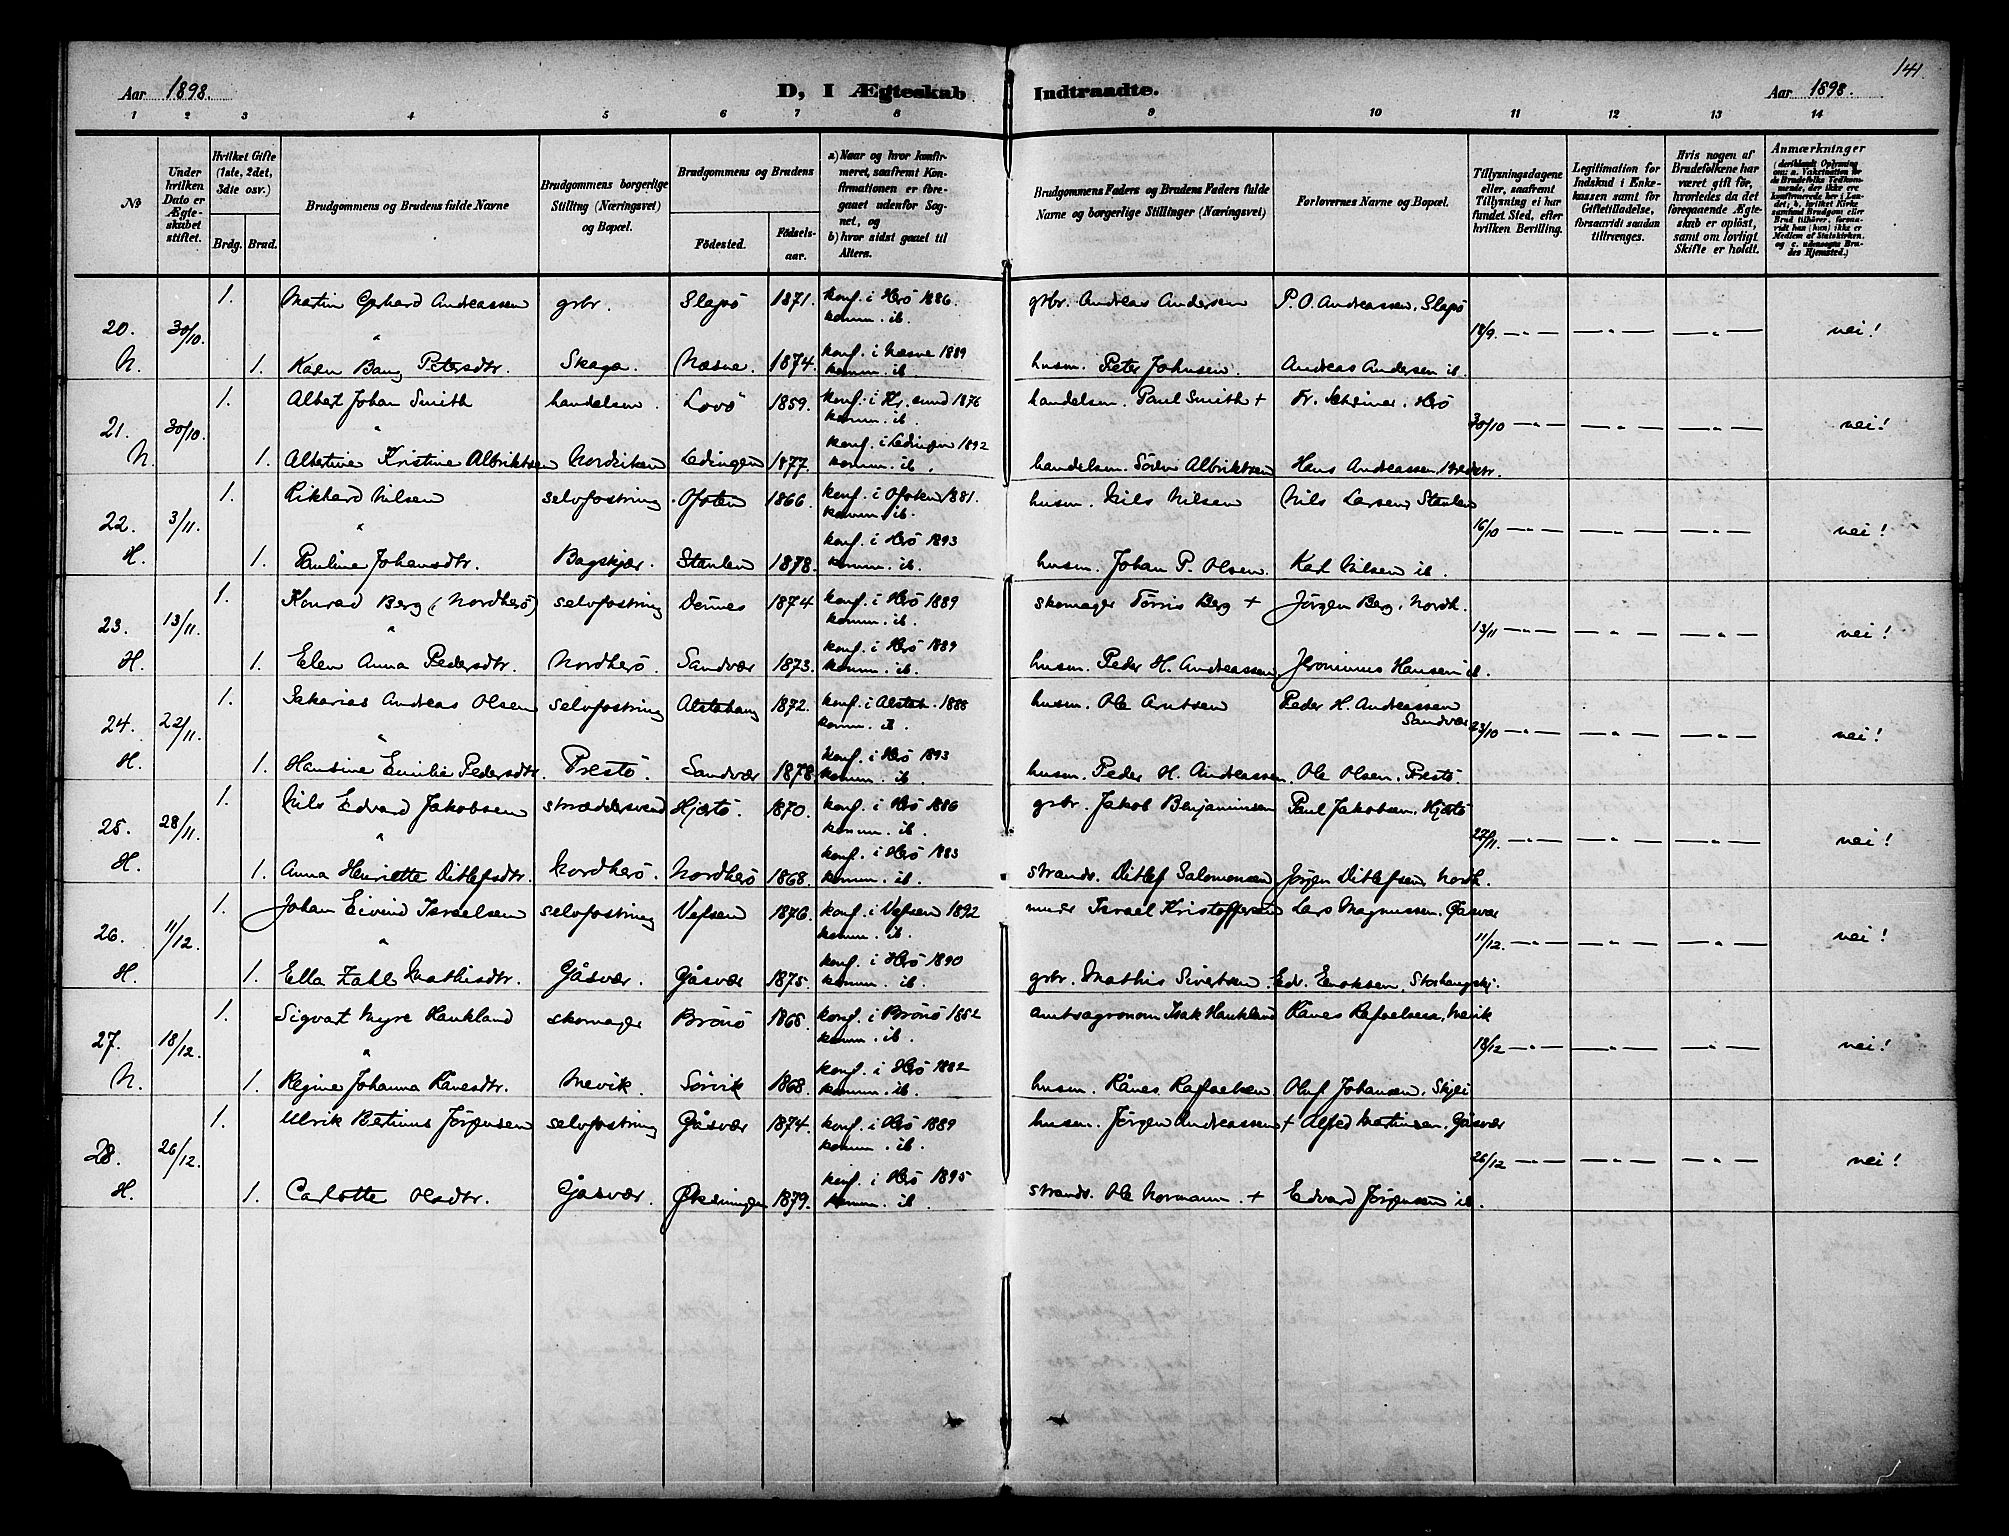 141.
Aar 1898. D, I Ægteskab Indtraadte. Aar 1898.
1 2 3 4 5 6 7 8 9 10 11 12 13 14
№
Under hvilken Dato er Ægteskabet stiftet.
Hvilket Gifte (1ste, 2det, 3die osv.)
Brdg. Brud.
Brudgommens og Brudens fulde Navne
Brudgommens borgerlige Stilling (Næringsvei) og Bopæl.
Brudgommens og Brudens
Födested. Födselsaar.
a) Naar og hvor konfirmeret, saafremt Konfirmationen er foregaaet udenfor Sognet, og
b) hvor sidst gaaet til Alters.
Brudgommens Faders og Brudens Faders fulde Navne og borgerlige Stillinger (Næringsvei)
Forlovernes Navne og Bopæl.
Tillysningsdagene eller, saafremt Tillysning ei har fundet Sted, efter hvilken Bevilling.
Legitimation for Indskud i Enkekassen samt for Giftetilladelse, forsaavidt saadan tiltrænges.
Hvis nogen af Brudefolkene har været gift før, hvorledes da det foregaaende Ægteskab er opløst, samt om lovligt Skifte er holdt.
Anmærkninger
1. Martin Gerhard Andreassen grbr. Slapö 1871. konf. i Herö 1886. komm. ib. grbr. Andreas Andersen P. O. Andreassen, Slapö
20. 30/10. " 18/9 — " — — " — — " — nei!
N. 1. Karen Bang Petersdtr. Skaga. Næsne. 1874. konf. i Næsne 1889 komm. ib. husm. Peter Johnsen. Andreas Andersen ib.
1. Albert Johan Smith handelsm. Lovö 1859. konf. i Kr.sund 1876 komm. ib. handelsm. Paul Smith + Fr. Herö
21. 30/10. " 30/10 — " — — " — — " — nei!
N. 1. Albertine Kristine Albriktsen Lödingen 1877. konf. i Lödingen 1892 komm. ib. handelsm. Sören Albriktsen Hans Andreassen,
1. Rikhard Nilsen selvfostring Ofoten 1866 konf. i Ofoten 1881. komm. ib. husm. Nils Nilsen Nils Larsen, Staulen
22. 3/11. " 16/10 — " — — " — — " — nei!
H. 1. Pauline Johansdtr. Bagskjær. Staulen 1878. konf. i Herö 1893 komm. ib. husm. Johan P. Olsen. Karl Nilsen ib.
1. Konrad Berg (Nordherö) selvfostring Dönnes 1874 konf. i Herö 1889 komm. ib. skomager Törris Berg + Jörgen Berg, Nordh.
23. 13/11. " 13/11 — " — — " — — " — nei!
H. 1. Elen Anna Pedersdtr. Nordherö. Sandvær 1873. konf. i Herö 1889 komm. ib. husm. Peder H. Andreassen Jeronimus Hansen ib.
1. Sakarias Andreas Olsen selvfostring Alstahaug 1872. konf. i Alstah. 1888 komm. ib. husm. Ole Arntsen Peder H. Andreassen Sandvær
24. 22/11. " 23/10 — " — — " — — " — nei!
H. 1. Hansine Emilie Pedersdtr. Prestö. Sandvær 1878. konf. i Herö 1893 komm. ib. husm. Peder H. Andreassen. Ole Olsen, Prestö.
1. Nils Edvard Jakobsen skræddersvend Hjartö. 1870. konf. i Herö 1886 komm. ib. grbr. Jakob Benjaminsen Paul Jakobsen, Hjartö
25. 28/11. " 27/11. — " — — " — — " — nei!
H. 1. Anna Henriette Ditlefsdtr. Nordherö. Nordherö 1868. konf. i Herö 1883 komm. ib. strands. Ditlef Salomonsen Jörgen Ditlefsen, Nordh.
1. Johan Eivind Israelsen selvfostring Vefsen 1876 konf. i Vefsen 1892 komm. ib. murer Israel Kristoffersen Lars Magnussen, Gåsvær
26. 11/12. " 11/12. — " — — " — — " — nei!
H. 1. Ella Zahl Mathisdtr. Gåsvær. Gåsvær 1875. konf. i Herö 1890 komm. ib. grbr. Mathis Sivertsen. Edv. Enoksen,
1. Sigvart Myre Haukland skomager Brönö 1868. konf. i Brönö 1882 komm. ib. amtsagronom Isak Haukland Rånes Rafaelsen, Nevik
27. 18/12. " 18/12 — " — — " — — " — nei!
N. 1. Regine Johanna Rånesdtr. Nevik. Sörvik 1868. konf. i Herö 1882 komm. ib. husm. Rånes Rafaelsen Oluf Johansen,
1. Ulrik Bertinus Jörgensen selvfostring Gåsvær 1874. konf. i Herö 1889 komm. ib. husm. Jörgen Andreassen + Alfred Martinsen, Gåsvær
28. 26/12. 26/12 — " — — " — — " — nei!
H. 1. Carlotte Olsdtr. Gåsvær. Øksningen 1879. konf. i Herö 1895 komm. ib. strands. Ole Normann. + Edvard Jörgensen ib.